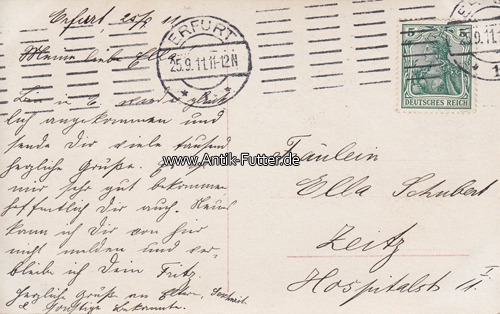 Erfurt, 25/9 11.
Meine liebe Ella
Bin u. E. wieder glück
lich angekommen und
sende Dir viele tausend
herzliche Grüße.
mir sehr gut bekommen
hoffentlich Dir auch. Neues
kann ich Dir von hier
nicht melden und ver-
bleibe ich Dein Fritz.
Herzliche Grüße an Eltern,
& sonstige Bekannte.
ERFURT
25.9.11.11-12N
* *
5 5
DEUTSCHES REICH
25.9.11
www.Antik-Futter.de
Fräulein
Ella Schubert
Zeitz
Hospitalst 11
I